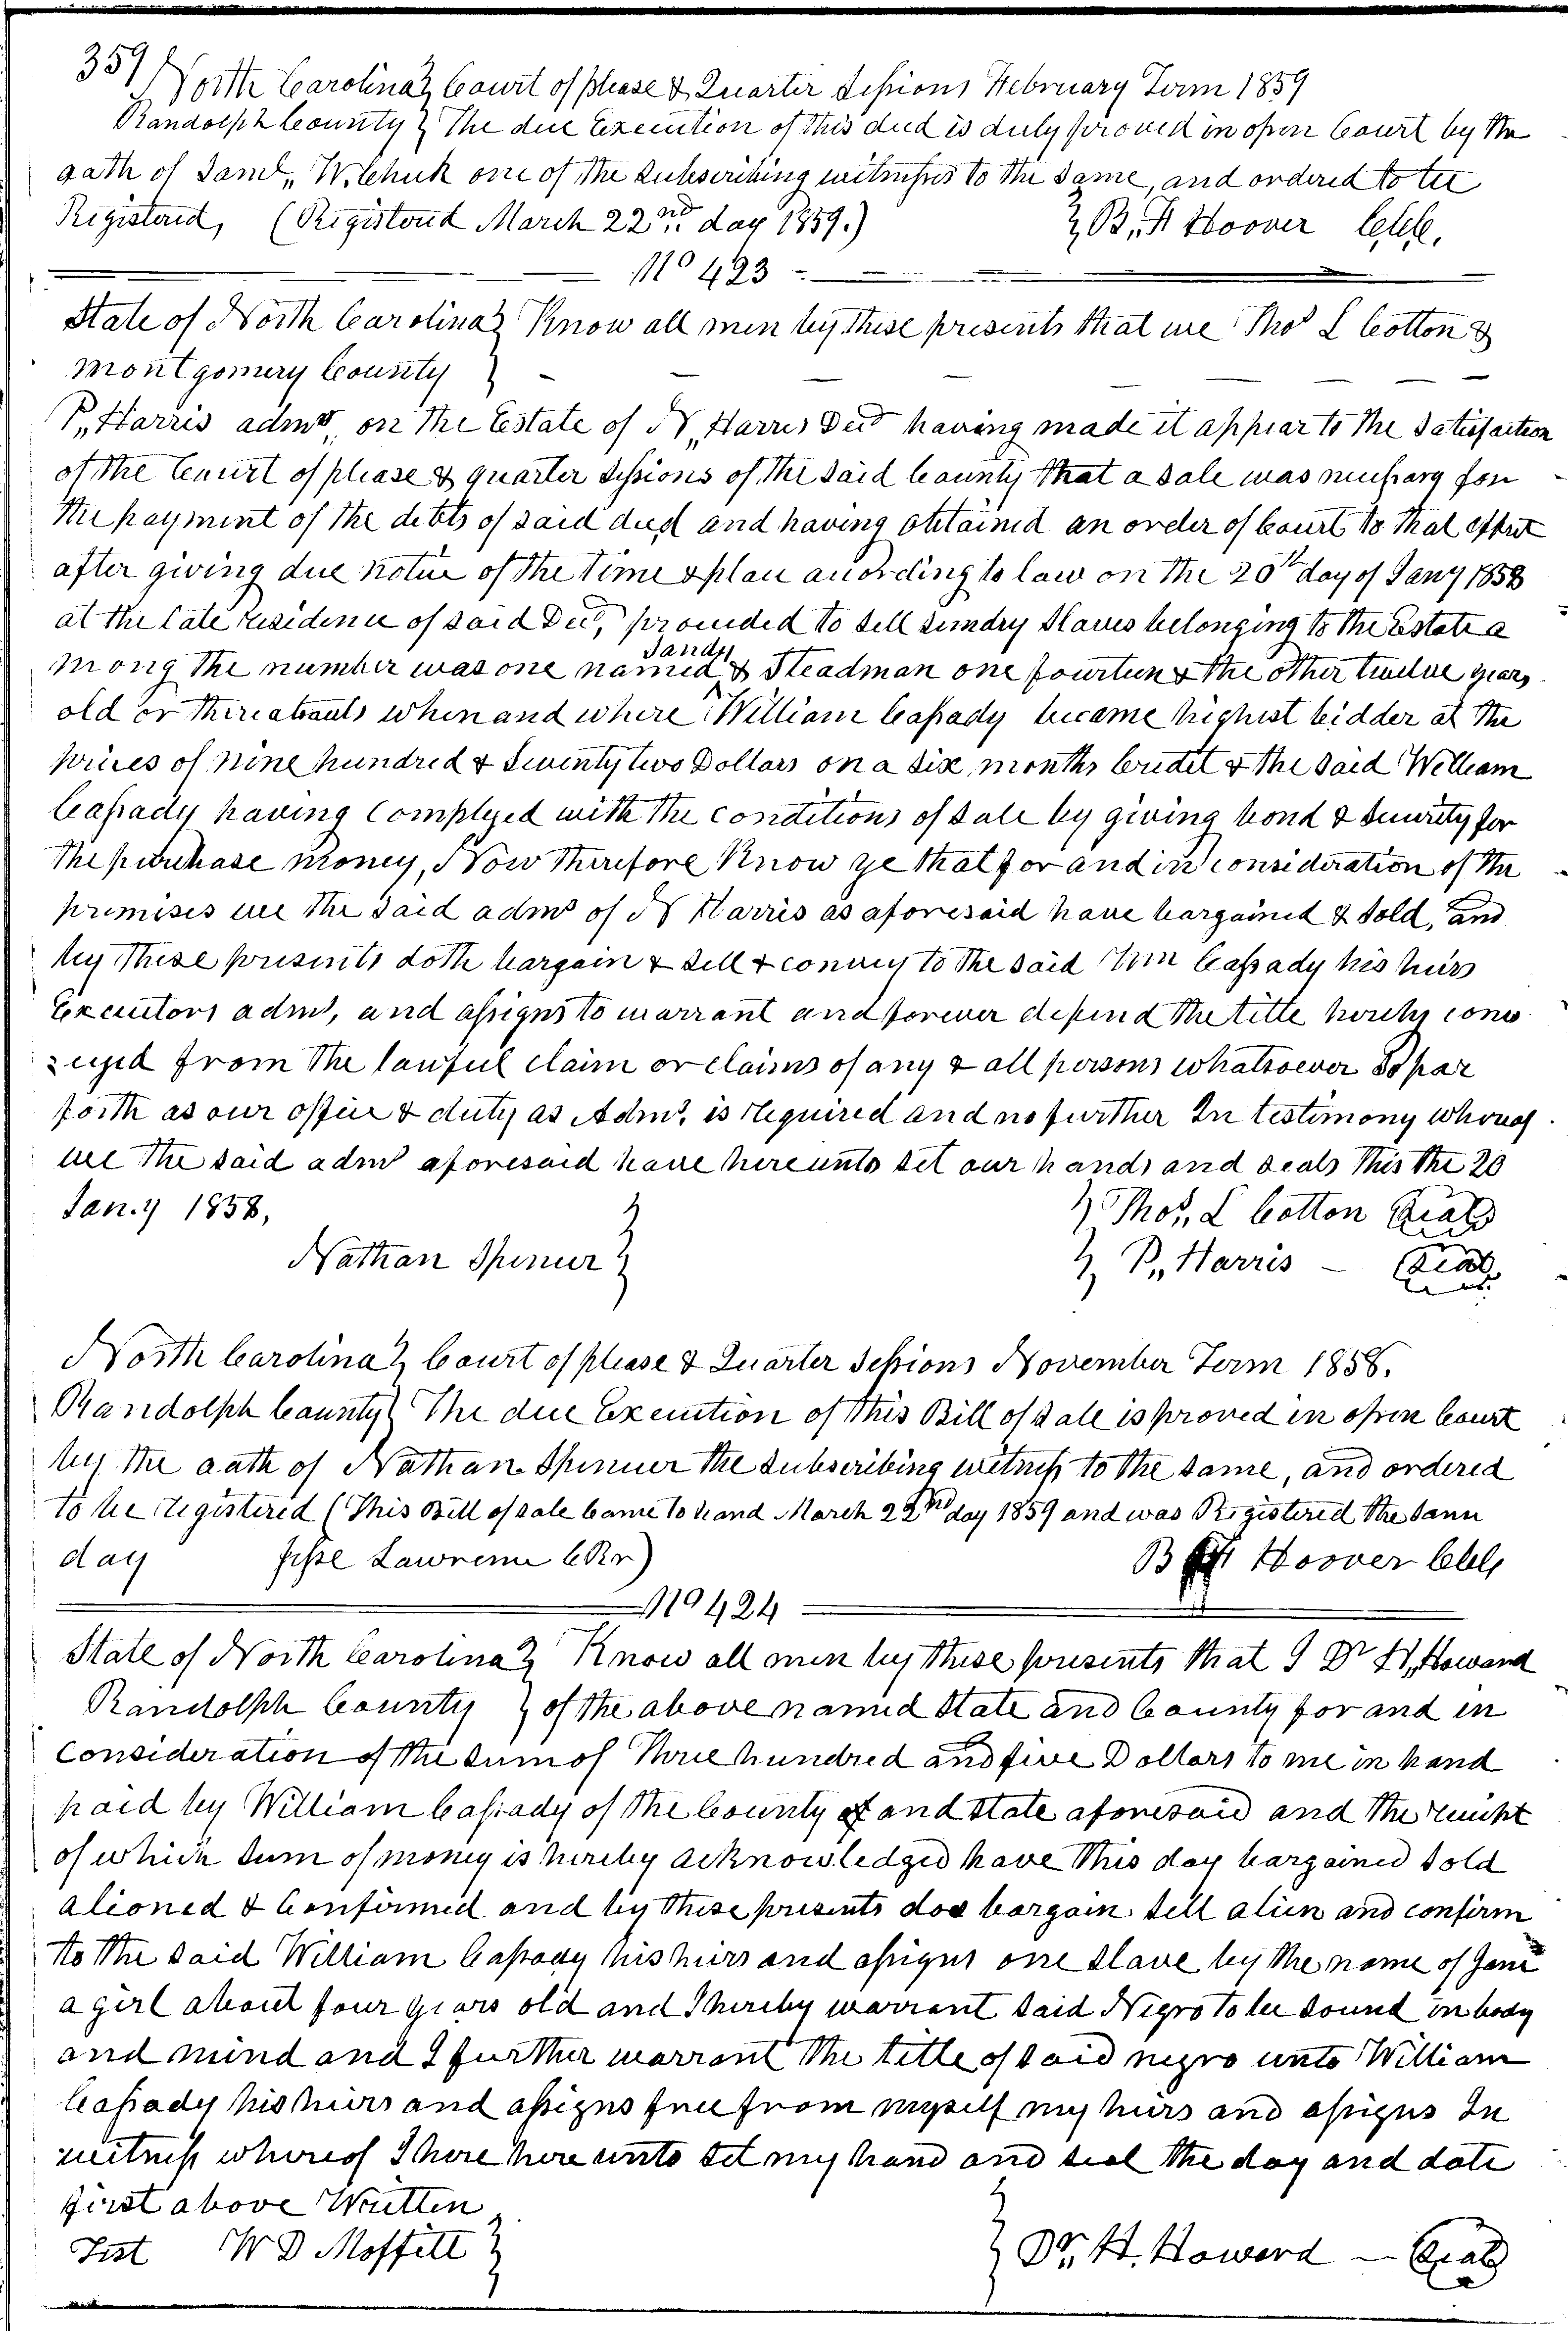 359
North Carolina } Court of please & Quarter Sessions February Term 1859
Randolph County } The due Execution of this deed is duly proved in open Court by the
oath of Saml,, W. Chuk one of the Subscribing witnesses to the same, and ordered to be
Registered, (Registerd March 22nd day 1859.) } B, F Hoover Cclk.
No 423
State of North Carolina } Know all men by these presents that we Thos L Cotton &
Montgomery County }
P,, Harris admrs, on the Estate of N,, Harris Decd having made it appear to the Satisfaction
of the Court of please & quarter Sessions of the said County that a sale was necessary for
the payment of the debts of said decd and having obtained an order of Court to that effect
after giving due notice of the time & place according to law on the 20th day of Jany 1858
at the late residence of said Decd, proceeded to sell sundry slaves belonging to the Estate a
mong the number was one named Sandy & Steadman one fourteen & the other twelve years
old or thereabouts when and where William Cassady became highest bidder at the
prices of nine hundred & Seventy two Dollars on a six months Credit & the said William
Cassady having Complyed with the conditions of sale by giving bond & Security for
the purchase money, Now therefore Know ye that for and in consideration of the
premises we the said admrs of N Harris as aforesaid have bargained & sold, and
by these presents doth bargain & sell & convey to the said Wm Cassady his heirs
Executors admrs, and assigns to warrant and forever defend the title hereby conv
eyed from the lawful claim or claims of any & all persons whatsoever So far
forth as our office & duty as Admrs, is required and no further In testimony whereof
we the said admrs aforesaid have hereunto set our hands and seals this the 20
Jan.y 1858,
} Thos,, L Cotton Seal
Nathan Spencer } } P,, Harris — Seal
North Carolina } Court of please & Quarter Sessions November Term 1858.
Randolph County } The due Execution of this Bill of Sale is proved in open Court
by the oath of Nathan Spencer the Subscribing witness to the same, and ordered
to be registered (This Bill of sale Came to hand March 22nd day 1859 and was Registered the same
day Jesse Lawrence CRr) B F Hoover Cclk
No 424
State of North Carolina } Know all men by these presents that I Dr H,, Howard
Randolph County } of the above named State and County for and in
Consideration of the sum of Three hundred and five Dollars to me in hand
paid by William Cassady of the County of and State aforesaid and the receipt
of which sum of money is hereby acknowledged have this day bargained sold
alioned & Confirmed and by these presents dos bargain sell alien and confirm
to the said William Cassady his heirs and assigns one slave by the name of Jane
a girl about four years old and I hereby warrant said Negro to be sound in body
and mind and I further warrant the title of said negro unto William
Cassady his heirs and assigns free from myself my heirs and assigns In
witness whereof I have here unto set my hand and seal the day and date
first above Written
Test W D Moffitt } } Dr,, H. Howard — Seal